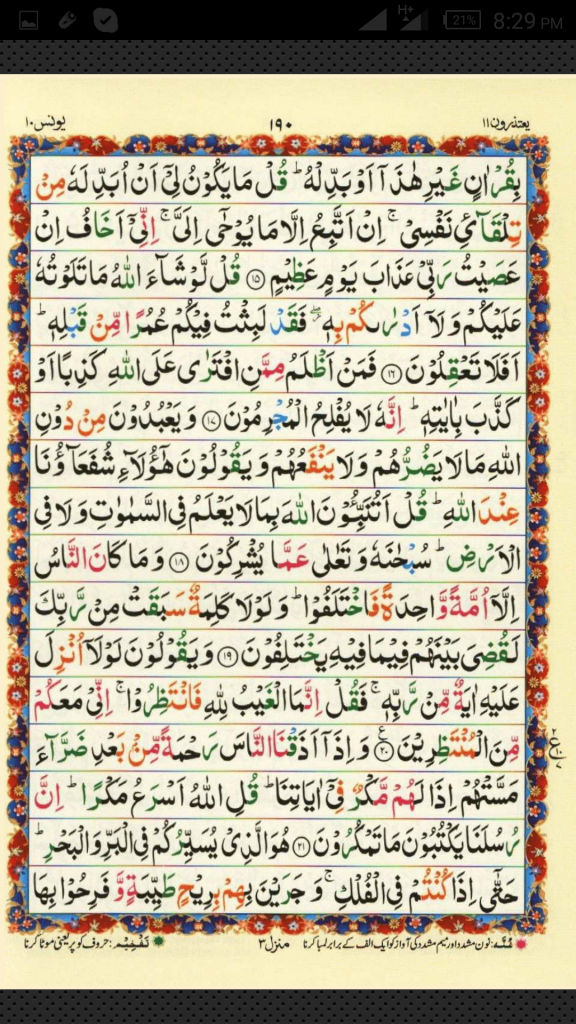 H+ 21% 8:29 PM
یعتذرون ۱۱ ۱۹۰ یونس ۱۰
بِقُرْاٰنٍ غَيْرِ هٰذَآ اَوْ بَدِّلْهُ ؕ قُلْ مَا يَكُوْنُ لِيْٓ اَنْ اُبَدِّلَهٗ مِنْ
تِلْقَآئِ نَفْسِيْ ۚ اِنْ اَتَّبِعُ اِلَّا مَا يُوْحٰٓى اِلَيَّ ۚ اِنِّيْٓ اَخَافُ اِنْ
عَصَيْتُ رَبِّيْ عَذَابَ يَوْمٍ عَظِيْمٍ ۝۱۵ قُلْ لَّوْ شَآءَ اللّٰهُ مَا تَلَوْتُهٗ
عَلَيْكُمْ وَلَآ اَدْرٰىكُمْ بِهٖ ۖ فَقَدْ لَبِثْتُ فِيْكُمْ عُمُرًا مِّنْ قَبْلِهٖ ؕ
اَفَلَا تَعْقِلُوْنَ ۝۱۶ فَمَنْ اَظْلَمُ مِمَّنِ افْتَرٰى عَلَى اللّٰهِ كَذِبًا اَوْ
كَذَّبَ بِاٰيٰتِهٖ ؕ اِنَّهٗ لَا يُفْلِحُ الْمُجْرِمُوْنَ ۝۱۷ وَيَعْبُدُوْنَ مِنْ دُوْنِ
اللّٰهِ مَا لَا يَضُرُّهُمْ وَلَا يَنْفَعُهُمْ وَيَقُوْلُوْنَ هٰٓؤُلَآءِ شُفَعَآؤُنَا
عِنْدَ اللّٰهِ ؕ قُلْ اَتُنَبِّـُٔوْنَ اللّٰهَ بِمَا لَا يَعْلَمُ فِي السَّمٰوٰتِ وَلَا فِي
الْاَرْضِ ؕ سُبْحٰنَهٗ وَتَعٰلٰى عَمَّا يُشْرِكُوْنَ ۝۱۸ وَمَا كَانَ النَّاسُ
اِلَّآ اُمَّةً وَّاحِدَةً فَاخْتَلَفُوْا ؕ وَلَوْلَا كَلِمَةٌ سَبَقَتْ مِنْ رَّبِّكَ
لَقُضِيَ بَيْنَهُمْ فِيْمَا فِيْهِ يَخْتَلِفُوْنَ ۝۱۹ وَيَقُوْلُوْنَ لَوْلَآ اُنْزِلَ
عَلَيْهِ اٰيَةٌ مِّنْ رَّبِّهٖ ۚ فَقُلْ اِنَّمَا الْغَيْبُ لِلّٰهِ فَانْتَظِرُوْا ۚ اِنِّيْ مَعَكُمْ
مِّنَ الْمُنْتَظِرِيْنَ ۝۲۰ ع وَاِذَآ اَذَقْنَا النَّاسَ رَحْمَةً مِّنْۢ بَعْدِ ضَرَّآءَ
مَسَّتْهُمْ اِذَا لَهُمْ مَّكْرٌ فِيْٓ اٰيَاتِنَا ؕ قُلِ اللّٰهُ اَسْرَعُ مَكْرًا ؕ اِنَّ
رُسُلَنَا يَكْتُبُوْنَ مَا تَمْكُرُوْنَ ۝۲۱ هُوَ الَّذِيْ يُسَيِّرُكُمْ فِي الْبَرِّ وَالْبَحْرِ ؕ
حَتّٰٓى اِذَا كُنْتُمْ فِي الْفُلْكِ ۚ وَجَرَيْنَ بِهِمْ بِرِيْحٍ طَيِّبَةٍ وَّفَرِحُوْا بِهَا
غُنّہ: نون مشدد اور میم مشدد کی آواز کو ایک الف کے برابر لمبا کرنا منزل ۳ تفخیم: حروف کو پُر یعنی موٹا کرنا